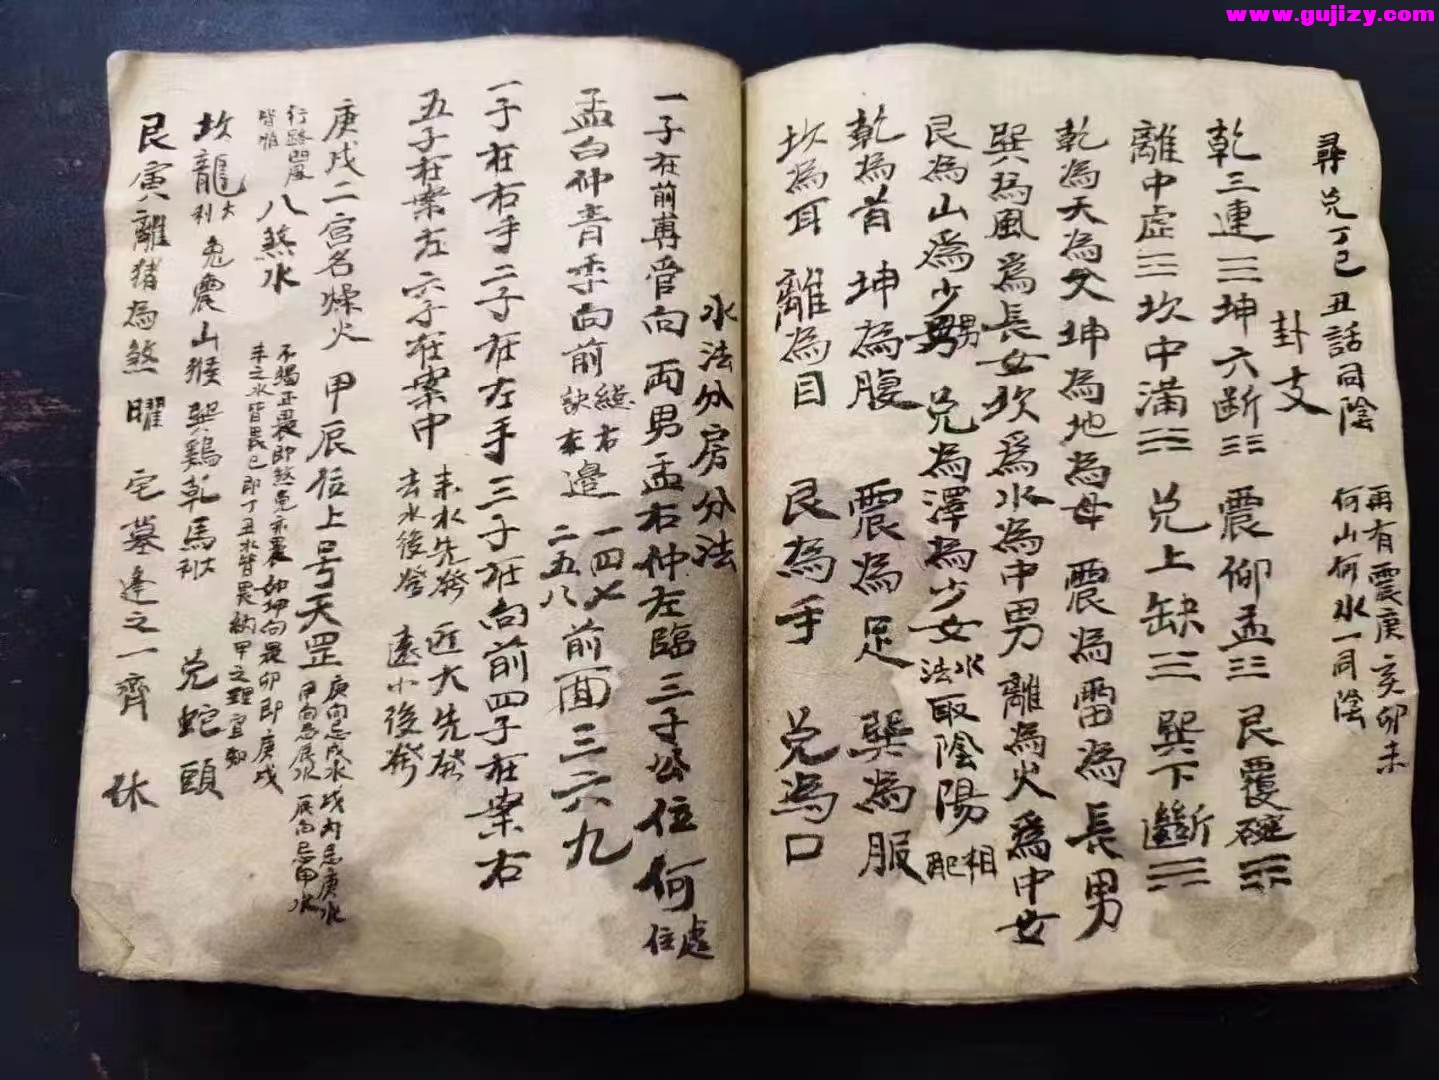 www.gujizy.com
尋兌丁巳丑話同陰
再有震庚亥卯未
何山何水一同陰
卦支
乾三連☰坤六断☷ 震仰盂☳ 艮覆碗☶
離中虚☲坎中滿☵ 兌上缺☱ 巽下斷☴
乾為天為父坤為地為母 震為雷為長男
巽為風為長女坎為水為中男 離為火為中女
艮為山為少男 兌為澤為少女水法取陰陽相配
乾為首 坤為腹 震為足 巽為服
坎為耳 離為目 艮為手 兌為口
水法分房分法
一子在前專管向 兩男孟右仲左臨 三子公位何處住
孟白仲青季向前 縂右訣左邊 一四七 二五八 前面三六九
一子在右手二子在左手三子在向前四子在案右
五子在案左六子在案中 来水先發 去水後發 近大先發 遠小後發
庚戌二宫名燥火 甲辰位上号天罡 庚向忌戌水戌向忌庚水 甲向忌辰水 辰向忌甲水
行路
皆惟
八煞水
坎龍 兔震山猴 巽鷄乾馬 兌蛇頭
艮寅離猪為煞曜 宅墓逢之一齊休